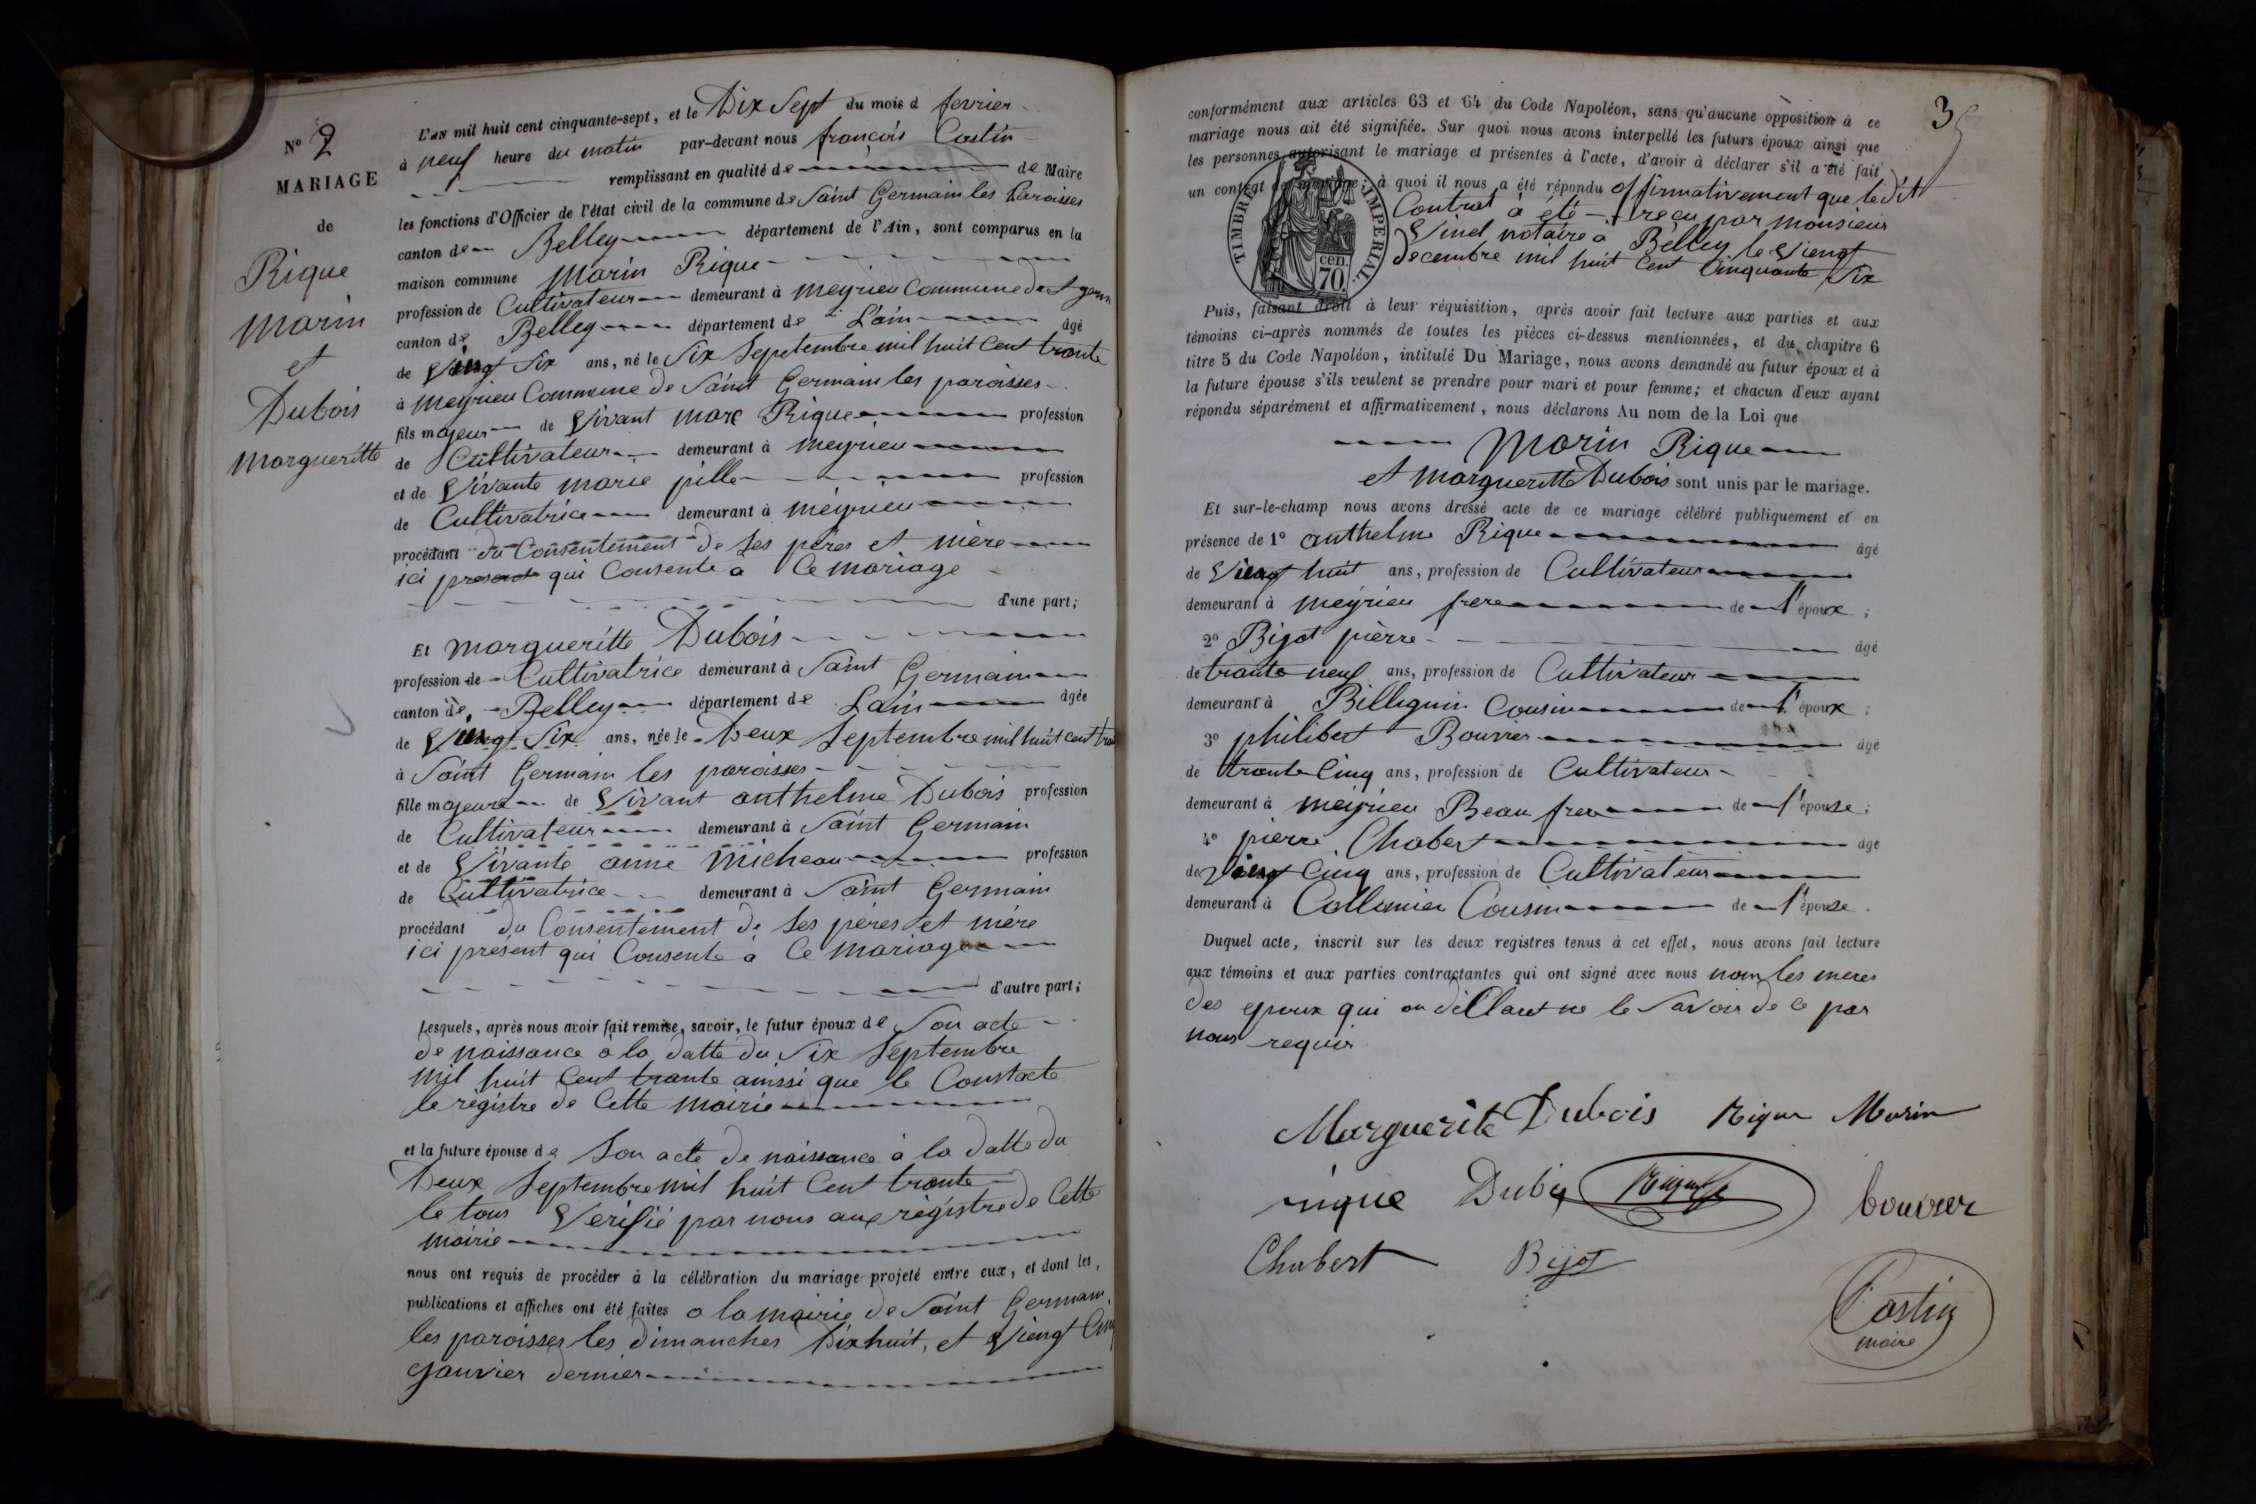 N° 2
MARIAGE
de
Rique
Marin
et
Dubois
Margueritte
L'AN mil huit cent cinquante-sept, et le Dix Sept du mois d fevrier
à neuf heure du matin par-devant nous françois Castin
remplissant en qualité de de Maire
les fonctions d'Officier de l'état civil de la commune de Saint Germain les Paroisses
canton de Belley département de l'Ain, sont comparus en la
maison commune Marin Rique
profession de Cultivateur demeurant à meyrieu Commune de St germ
canton de Belley département de L'ain âgé
de Vingt Six ans, né le Six Septembre mil huit Cent trante
à meyrieu Commune de Saint Germain les paroisses
fils majeur de Vivant marc Rique profession
de Cultivateur demeurant à meyrieu
et de Vivante marie pille profession
de Cultivatrice demeurant à meyrieu
procédant du Consentement de Ses pères et mère
ici present qui Consente à Ce mariage
d'une part;
Et Margueritte Dubois
profession de Cultivatrice demeurant à Saint Germain
canton de Belley département de L'ain âgée
de Vingt Six ans, née le Deux Septembre mil huit cent tra
à Saint Germain les paroisses
fille majeure de Vivant anthelme Dubois profession
de Cultivateur demeurant à Saint Germain
et de Vivante anne Micheau profession
de Cultivatrice demeurant à Saint Germain
procédant du Consentement de Ses pères et mère
ici présent qui Consente à Ce mariage
d'autre part;
Lesquels, après nous avoir fait remise, savoir, le futur époux de Son acte
de naissance à la datte du Six Septembre
mil huit Cent trante ainssi que le Constacte
le régistre de Cette mairie
et la future épouse de Son acte de naissance à la datte du
Deux Septembre mil huit Cent trante
le tous Vérifié par nous aux régistre de Cette
mairie
nous ont requis de procéder à la célébration du mariage projeté entre eux, et dont les
publications et affiches ont été faites a la mairie de Saint Germain
les paroisses les dimanches Dixhuit, et Viengt Cinq
Janvier dernier
35
conformément aux articles 63 et 64 du Code Napoléon, sans qu'aucune opposition à ce
mariage nous ait été signifiée. Sur quoi nous avons interpellé les futurs époux ainsi que
les personnes autorisant le mariage et présentes à l'acte, d'avoir à déclarer s'il a été fait
un contrat de mariage; à quoi il nous a été répondu affirmativement que le dit
Contrat à été reçu par monsieur
Vinel notaire a Belley le Viengt
decembre mil huit Cent Cinquante Six
TIMBRE IMPERIAL
70 cen.
Puis, faisant droit à leur réquisition, après avoir fait lecture aux parties et aux
témoins ci-après nommés de toutes les pièces ci-dessus mentionnées, et du chapitre 6
titre 5 du Code Napoléon, intitulé Du Mariage, nous avons demandé au futur époux et à
la future épouse s'ils veulent se prendre pour mari et pour femme; et chacun d'eux ayant
répondu séparément et affirmativement, nous déclarons Au nom de la Loi que
Marin Rique
et Margueritte Dubois sont unis par le mariage.
Et sur-le-champ nous avons dressé acte de ce mariage célébré publiquement et en
présence de 1° anthelme Rique âgé
de Viengt huit ans, profession de Cultivateur
demeurant à meyrieu frere de l'époux;
2° Bijot pierre âgé
de trante neuf ans, profession de Cultivateur
demeurant à Billeguin Cousin de l'époux;
3° philibert Bouvier âgé
de trante Cinq ans, profession de Cultivateur
demeurant à meyrieu Beau frere de l'épouse;
4° pierre Chabert âgé
de Viengt Cinq ans, profession de Cultivateur
demeurant à Collomieu Cousin de l'épouse.
Duquel acte, inscrit sur les deux registres tenus à cet effet, nous avons fait lecture
aux témoins et aux parties contractantes qui ont signé avec nous non les meres
des epoux qui on déClaret ne le Savoir de ce par
nous requir
Marguerite Dubois Rique Marin
rique Dubois Rique bouvier
Chabert Bijot
Castin
maire